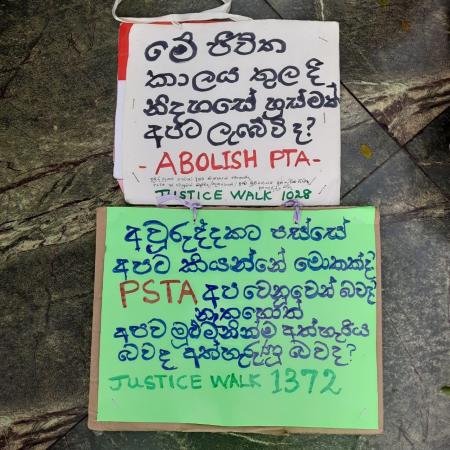 මේ ජීවිත
කාලය තුල දී
නිදහසේ හුස්මක්
අපට ලැබේවි ද?
- ABOLISH PTA -
JUSTICE WALK 1028
අවුරුද්දකට පස්සේ
අපට කියන්නේ මොකක්ද
PSTA අප වෙනුවෙන් බවද
නැතහොත්
අපව මුළුමනින්ම අත්හැරිය
බවද අත්හැරුණු බවද?
JUSTICE WALK 1372